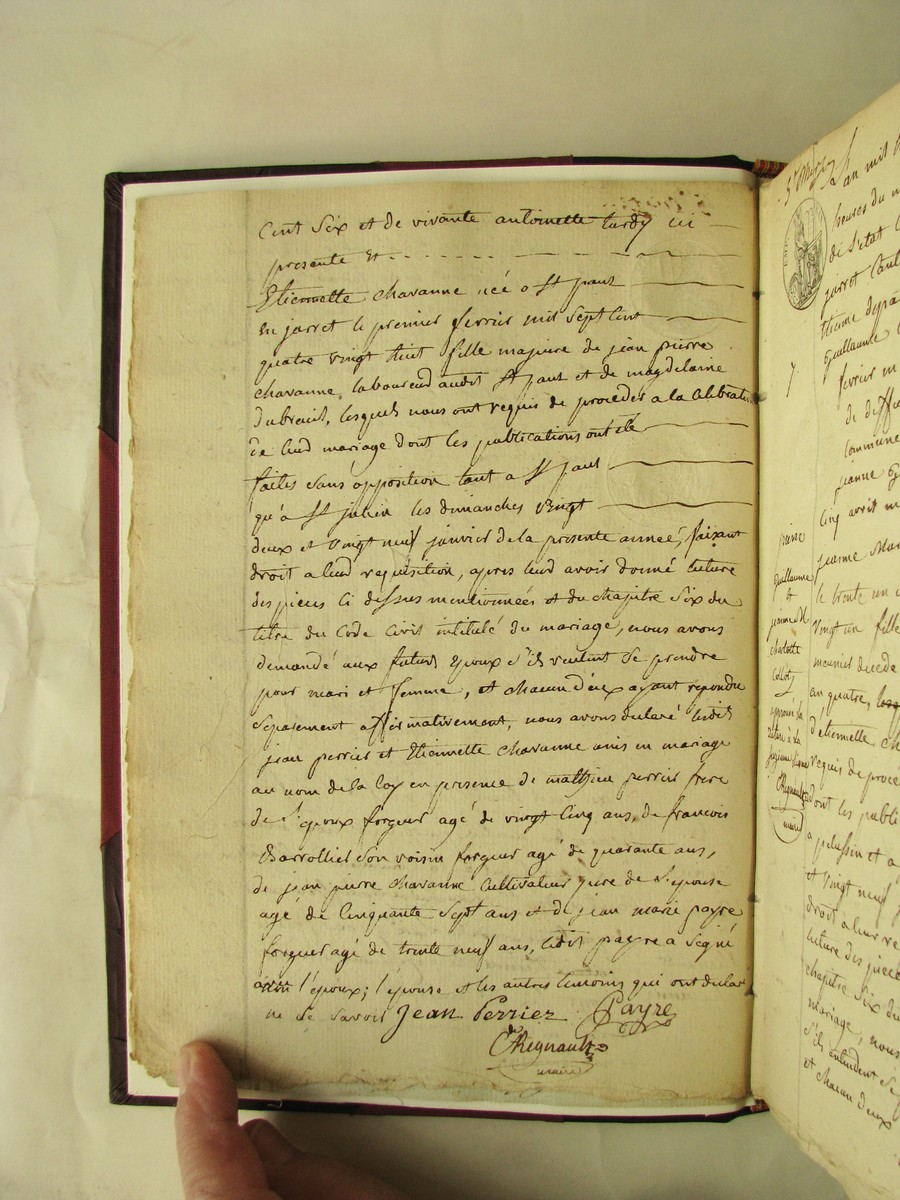 Cent Six et de vivante antoinette tardy ici
presente Et
Etiennette chavanne née a St paul
en jarret le premier fevrier mil Sept Cent
quatre vingt huit fille majeure de jean pierre
chavanne, laboureur audit St paul et de magdelaine
dubreuil, lesquels nous ont requis de proceder a la Celebration
de leud mariage dont les publications ont été
faites sans opposition tant a St paul
qu'a St julien les dimanches vingt
deux et vingt neuf janvier de la presente année, faisant
droit a leud requisition, apres leud avoir donné lecture
des pieces Ci dessus mentionnées et du chapitre Six du
titre du Code Civil intitulé du mariage, nous avons
demandé aux futurs Epoux s'ils veulent se prendre
pour mari et femme, et chacun d'eux ayant repondu
Separement affirmativement, nous avons declaré ledit
jean perrier et Etiennette chavanne unis en mariage
au nom de la loy en presence de mathieu perrier frere
de l'epoux forgeur agé de vingt Cinq ans, de francois
Barrolliel Son voisin forgeur agé de quarante ans,
de jean pierre chavanne Cultivateur pere de l'epouse
agé de Cinquante Sept ans et de jean marie payre
forgeur agé de trente neuf ans, ledit payre a Signé
avec l'epoux; l'epouse et les autres temoins qui ont declar
ne le Savoir Jean Perrier Payre
C Regnault
maire
L'an mil
heures du m
de l'etat C
jarret Cant
Etienne
guillaume
fevrier m
de
Commune
jeanne
Cinq avril m
jeanne Mar
le trente un
vingt un fille
meunier decedé
an quatre,
d'etiennette ch
requis de procé
dont les publi
a pelussin et a
et vingt neuf
droit a leur re
lecture des piece
chapitre Six du
mariage, nous
s'ils entendent Se
et chacun d'eux
7
guillaume
et
jeanne M
charlotte
C Regnault
maire